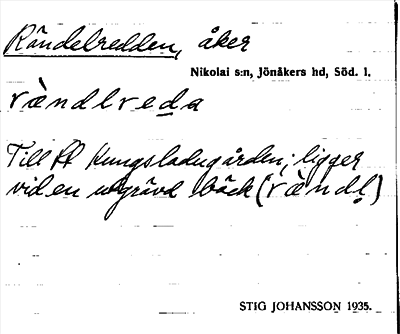 Rändelredden, åker
Nikolai s:n, Jönåkers hd, Söd. l.
rändlreda
Till Kungsladugården; ligger
vid en utgrävd bäck (rändḷ)
STIG JOHANSSON 1935.